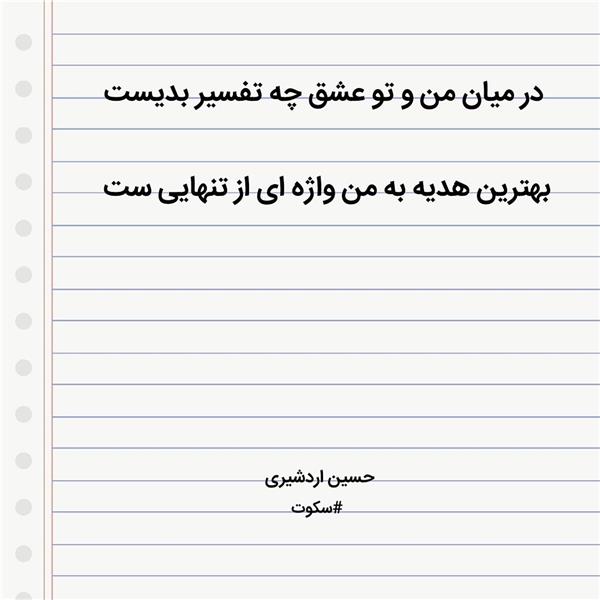 در میان من و تو عشق چه تفسیر بدیست
بهترین هدیه به من واژه ای از تنهایی ست
حسین اردشیری
#سکوت